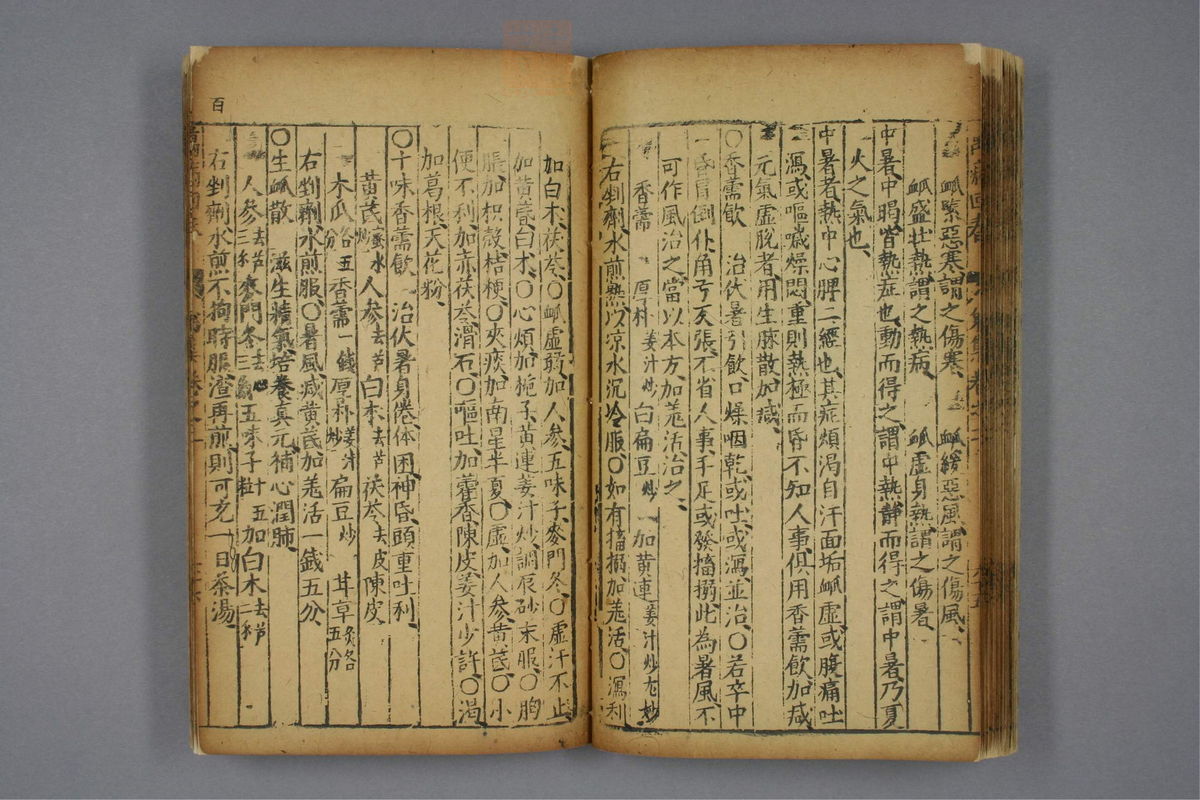 脉緊惡寒謂之傷寒　脉緩惡風謂之傷風
脉盛壮熱謂之熱病　脉虛身熱謂之傷暑
中暑中暍皆熱症也動而得之謂中熱靜而得之謂中暑乃夏
火之氣也
中暑者熱中心脾二經也其症煩渴自汗面垢脉虛或腹痛吐
瀉或嘔噦燥悶重則熱極而昏不知人事俱用香薷飲加减
元氣虛脫者用生脉散加减
〇香薷飲　治伏暑引飲口燥咽乾或吐或瀉並治〇若卒中
一昏冒倒仆角弓反張不省人事手足或發搐搦此為暑風不
可作風治之當以本方加羌活治之
香薷　厚朴姜汁炒　白扁豆炒　加黃連姜汁炒尤妙
右剉劑水煎熟以凉水沉冷服〇如有搐搦加羌活〇瀉利
加白术茯苓〇脉虛弱加人參五味子麥門冬〇虛汗不止
加黃芪白朮〇心煩加梔子黃連姜汁炒調辰砂末服〇胸
脹加枳殼桔梗〇夾痰加南星半夏〇虛加人參黃芪〇小
便不利加赤茯苓滑石〇嘔吐加藿香陳皮姜汁少許〇渴
加葛根天花粉
〇十味香薷飲　治伏暑身倦体困神昏頭重吐利
黃芪蜜水炒　人參去芦　白朮去芦　茯苓去皮　陳皮
木瓜各五分　香薷一錢　厚朴姜汁炒　扁豆炒　甘草炙各五分
右剉劑水煎服〇暑風减黃芪加羌活一錢五分
〇生脉散　滋生精氣培養真元補心潤肺
人參去芦三錢　麥門冬去心三錢　五味子十五粒　加白术去芦二錢
右剉劑水煎不拘時服渣再煎則可充一日茶湯
百